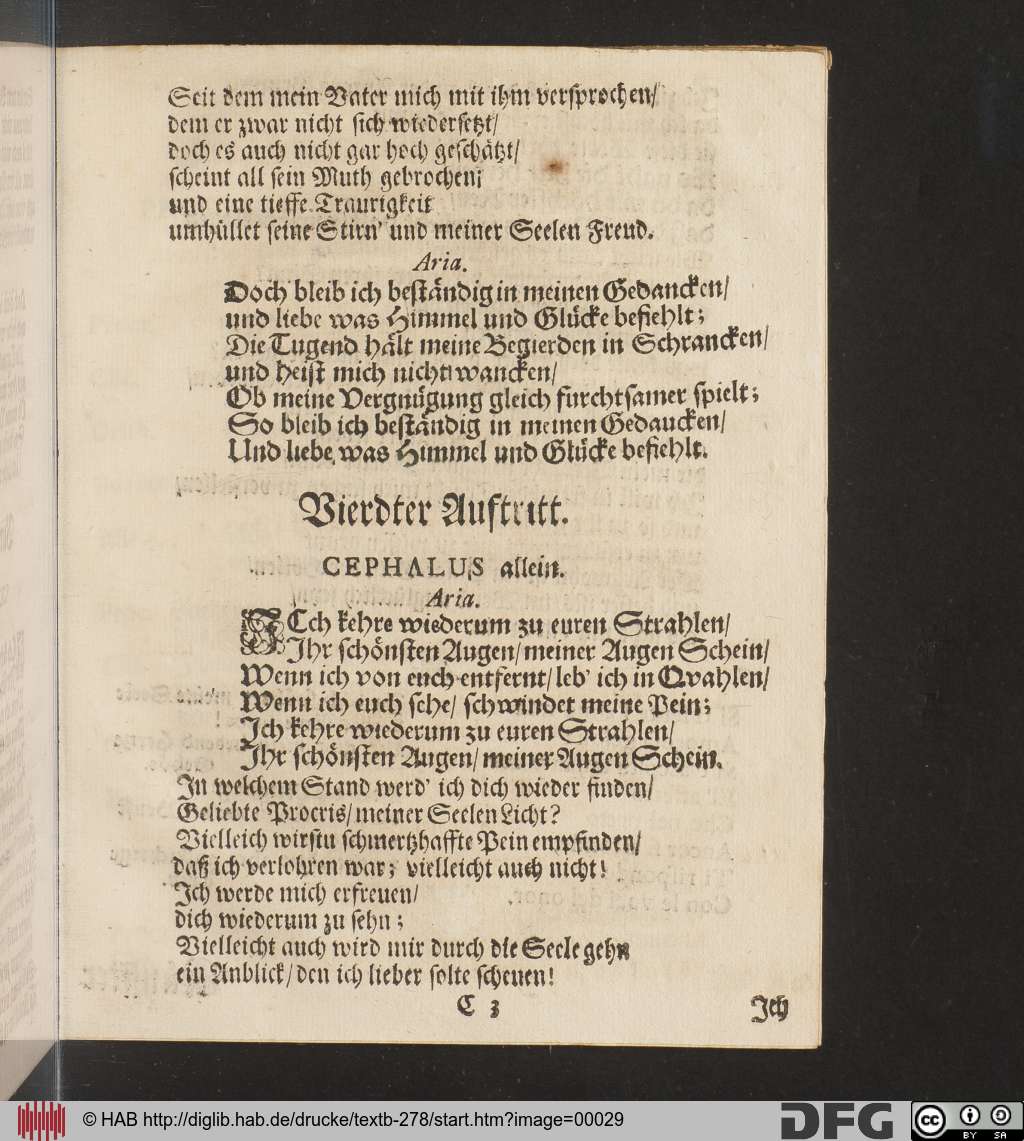 Seit dem mein Vater mich mit ihm versprochen/
dem er zwar nicht sich wiedersetzt/
doch es auch nicht gar hoch geschätzt/
scheint all sein Muth gebrochen;
und eine tieffe Traurigkeit
umhüllet seine Stirn' und meiner Seelen Freud.
Aria.
Doch bleib ich beständig in meinen Gedancken/
und liebe was Himmel und Glücke befiehlt;
Die Tugend hält meine Begierden in Schrancken/
und heist mich nicht wancken/
Ob meine Vergnügung gleich furchtsamer spielt;
So bleib ich beständig in meinen Gedaucken/
Und liebe was Himmel und Glücke befiehlt.
Vierdter Auftritt.
CEPHALUS allein.
Aria.
ICh kehre wiederum zu euren Strahlen/
Ihr schönsten Augen/ meiner Augen Schein/
Wenn ich von euch entfernt/ leb' ich in Qvahlen/
Wenn ich euch sehe/ schwindet meine Pein;
Ich kehre wiederum zu euren Strahlen/
Ihr schönsten Augen/ meiner Augen Schein.
In welchem Stand werd' ich dich wieder finden/
Geliebte Procris/ meiner Seelen Licht?
Vielleich wirstu schmertzhaffte Pein empfinden/
daß ich verlohren war; vielleicht auch nicht!
Ich werde mich erfreuen/
dich wiederum zu sehn;
Vielleicht auch wird mir durch die Seele gehn
ein Anblick/ den ich lieber solte scheuen!
C 3
Ich
© HAB http://diglib.hab.de/drucke/textb-278/start.htm?image=00029
DFG
cc BY SA